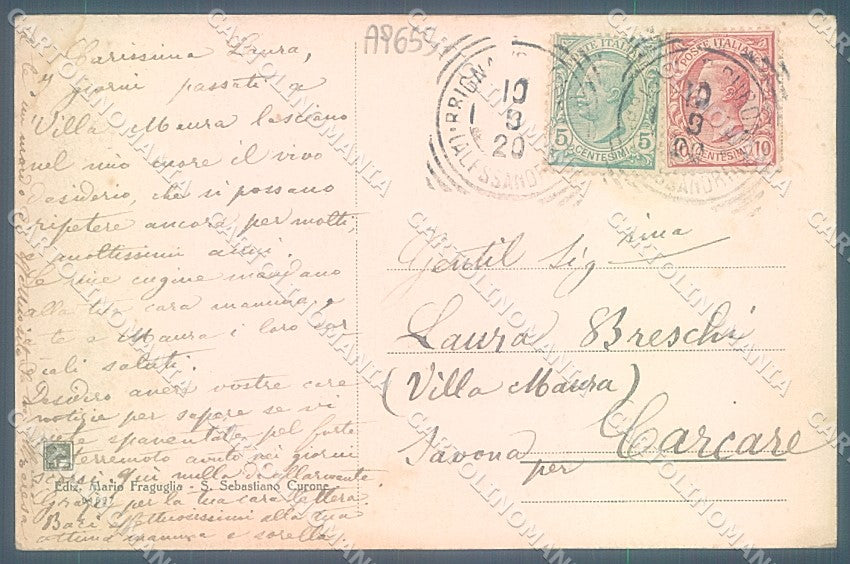 A9659
Carissima Laura,
4 giorni passati a
Villa Maura lasciano
nel mio cuore il vivo
desiderio, che si possano
ripetere ancora per molti,
e moltissimi anni.
Le mie cugine mandano
alla tua cara mamma, a
a te a Maura i loro cor
diali saluti.
Desidero avere vostre care
notizie per sapere se vi
spaventate pel forte
terremoto avuto nei giorni
scorsi. Qui nulla di allarmante.
Grazie per la tua cara lettera.
Baci affettuosissimi alla tua
ottima mamma e sorella
Ediz. Mario Fraguglia - S. Sebastiano Curone
10
8
20
(ALESSANDRIA)
POSTE ITALIANE
5 5
CENTESIMI
POSTE ITALIANE
10
CENTESIMI
10
8
20
(ALESSANDRIA)
Gentil Sig.rina
Laura Breschi
(Villa Maura)
Carcare
Savona per
CARTOLINOMANIA